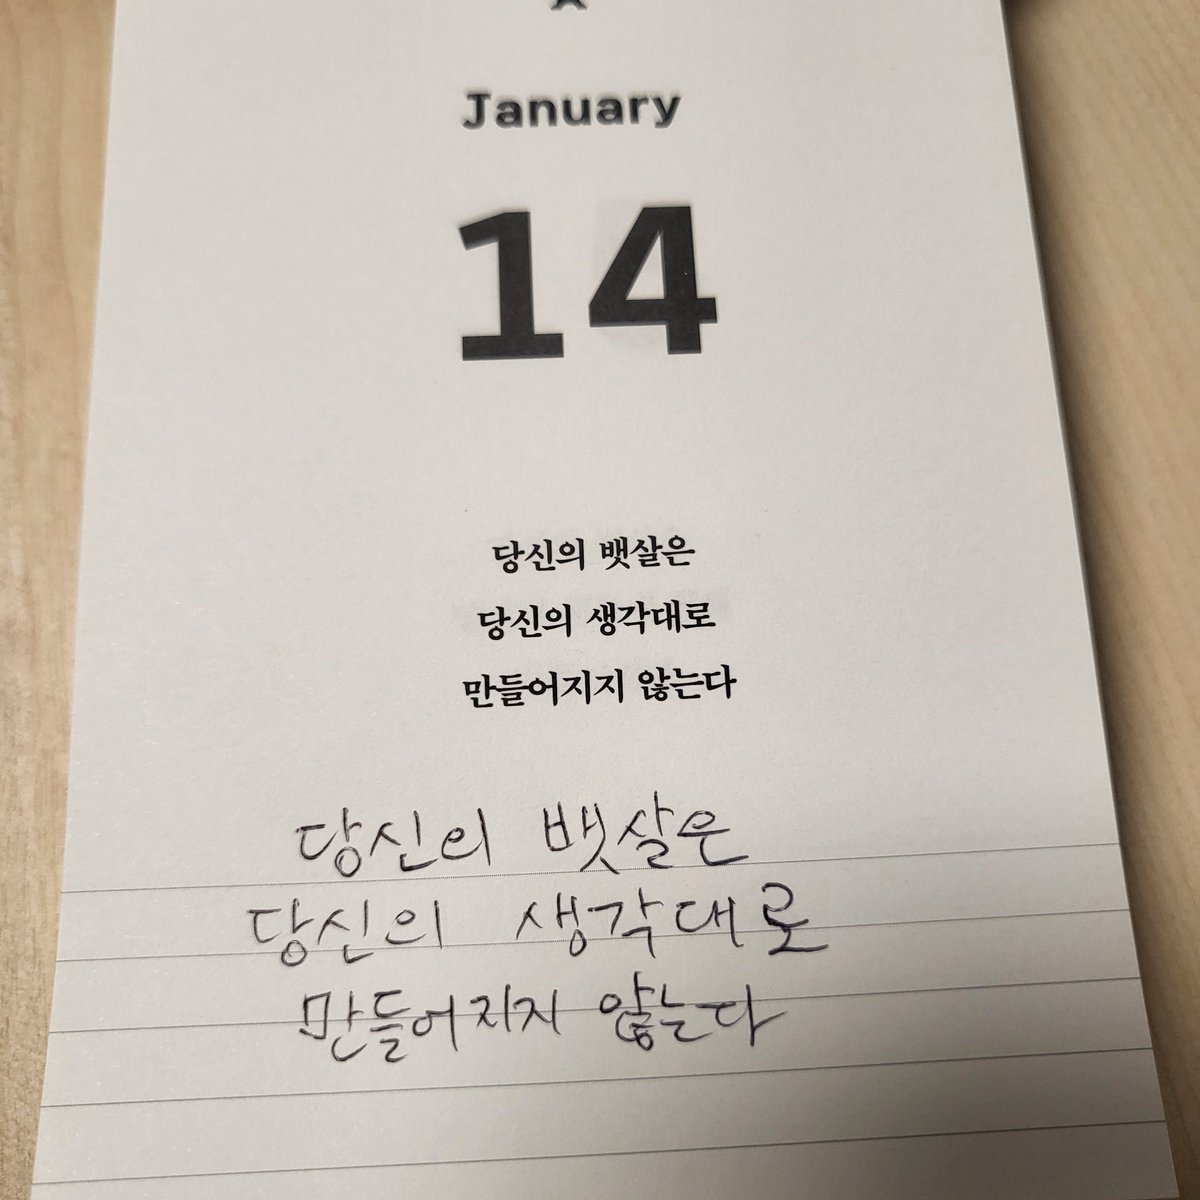 January
14
당신의 뱃살은
당신의 생각대로
만들어지지 않는다
당신의 뱃살은
당신의 생각대로
만들어지지 않는다